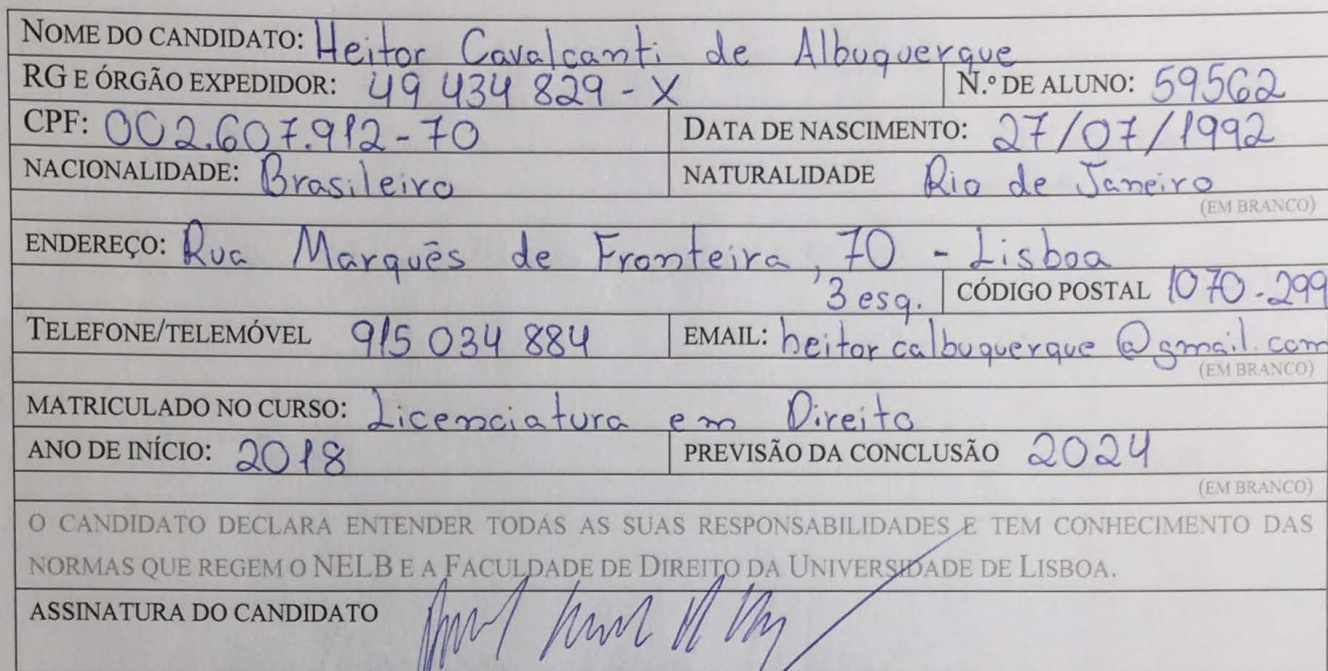 NOME DO CANDIDATO: Heitor Cavalcanti de Albuquerque
RG E ÓRGÃO EXPEDIDOR: 49 434 829 - X N.º DE ALUNO: 59562
CPF: 002.607.912-70 DATA DE NASCIMENTO: 27/07/1992
NACIONALIDADE: Brasileiro NATURALIDADE Rio de Janeiro
(EM BRANCO)
ENDEREÇO: Rua Marquês de Fronteira, 70 - Lisboa
3 esq. CÓDIGO POSTAL 1070-299
TELEFONE/TELEMÓVEL 915 034 884 EMAIL: heitorcalbuquerque@gmail.com
(EM BRANCO)
MATRICULADO NO CURSO: Licenciatura em Direito
ANO DE INÍCIO: 2018 PREVISÃO DA CONCLUSÃO 2024
(EM BRANCO)
O CANDIDATO DECLARA ENTENDER TODAS AS SUAS RESPONSABILIDADES E TEM CONHECIMENTO DAS
NORMAS QUE REGEM O NELB E A FACULDADE DE DIREITO DA UNIVERSIDADE DE LISBOA.
ASSINATURA DO CANDIDATO